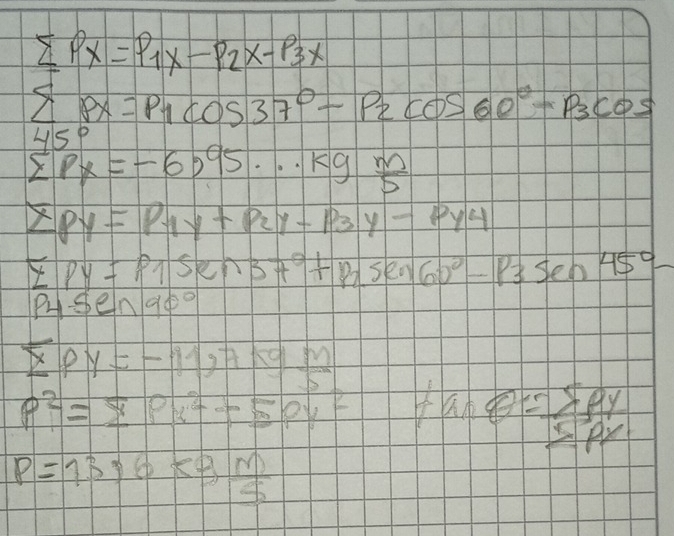 Σ Px = P1x - P2x - P3x
Σ px = P1 cos 37° - P2 cos 60° - P3 cos
45°
Σ Px = -6,95... kg m/s
Σ py = P1y + P2y - P3y - Py4
Σ py = P1 sen 37° + P2 sen 60° - P3 sen 45° -
P4 sen 90°
Σ py = -11,7 kg m/s
P² = Σ Px² + Σ py² tan θ = Σ py / Σ px
P = 13,6 kg m/s